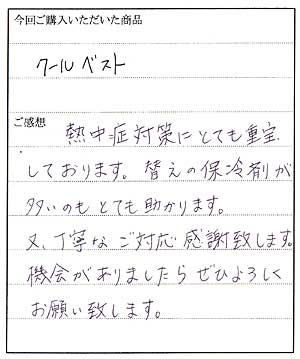 今回ご購入いただいた商品
クールベスト
ご感想
熱中症対策にとても重宝
しております。替えの保冷剤が
多いのもとても助かります。
又、丁寧なご対応感謝致します。
機会がありましたらぜひよろしく
お願い致します。